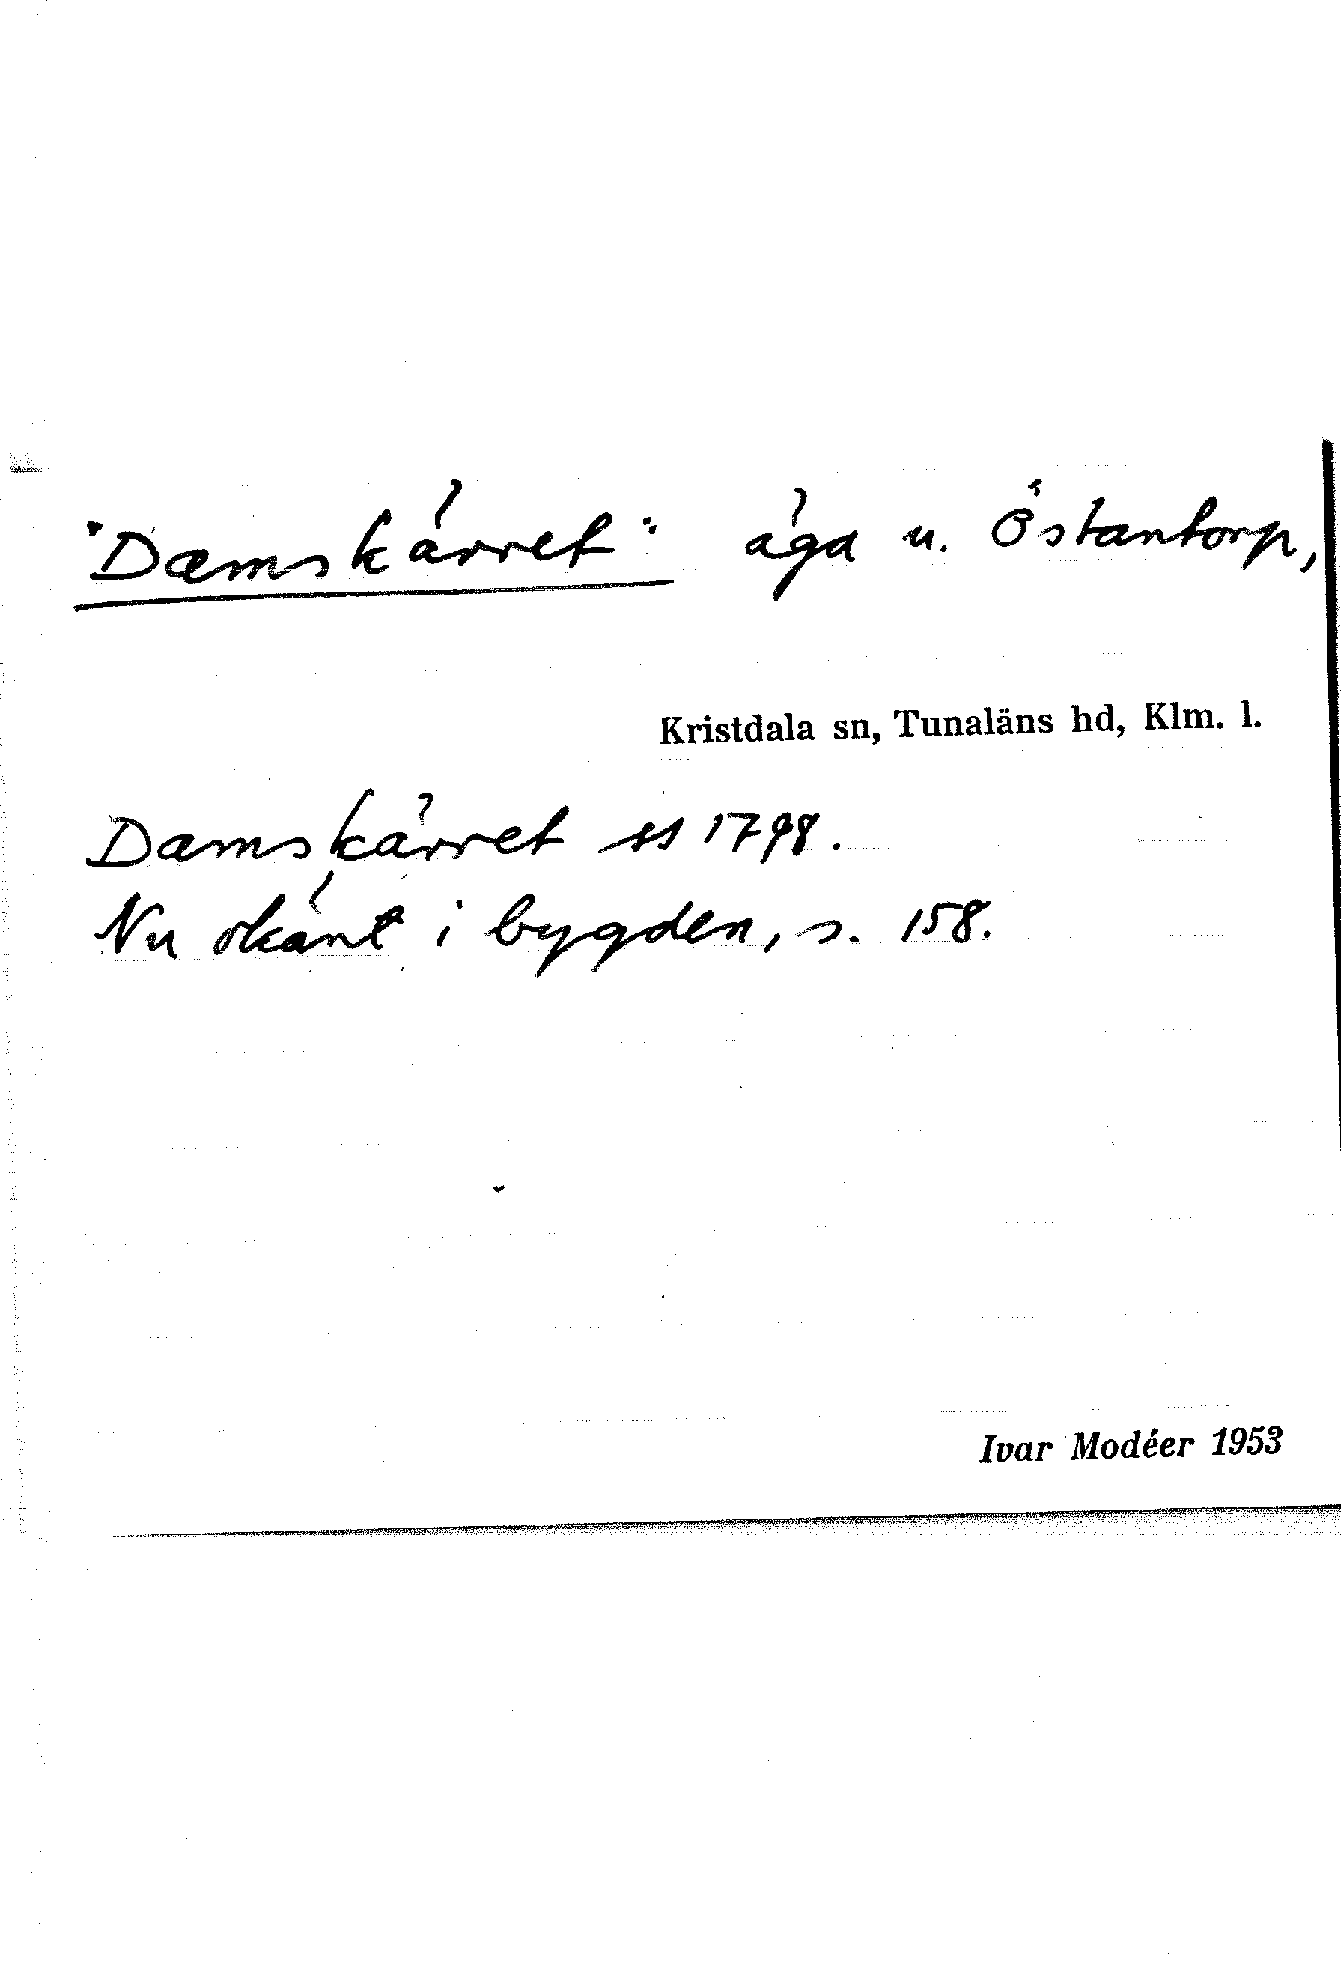 "Damskärret" äga u. Östantorp,
Kristdala sn, Tunaläns hd, Klm. l.
Damskärret ss 1798.
Nu okänt i bygden, s. 158.
Ivar Modéer 1953